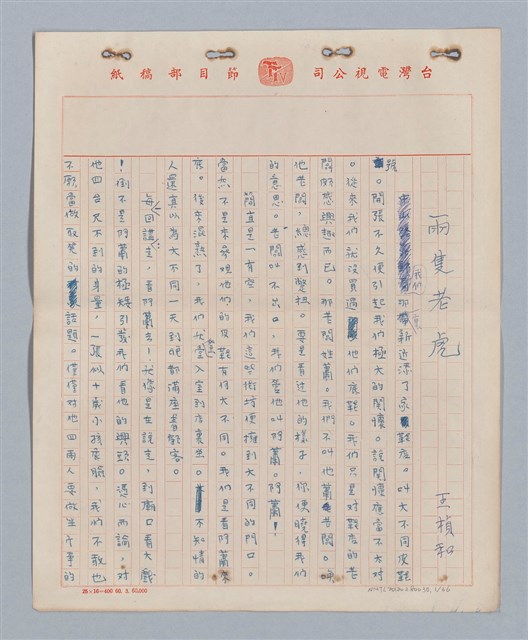 台灣電視公司 節目部稿紙
TTV
兩隻老虎
王禎和
我們那 新近添了家鞋店。叫大不同皮鞋
號。開張不久便引起我們極大的關懷。說關懷應當不太對
。從來我們就沒買過他們底鞋。我們只是對鞋店的老
闆的感興趣而已。那老闆姓蕭。我們不叫他蕭老闆。喚
他老闆,總感到彆扭。要是看過他的樣子,你便曉得我們
的意思。老闆叫不出口,我們管他叫阿蕭。阿蕭!
簡直是一有空,我們這些街坊便擁到大不同的門口。
當然不是來參觀他們的皮鞋有何大不同。我們是看阿蕭來
底。後來混熟了,我們 登入室到店裏坐。 不知情的
人還真以為大不同一天到晚都滿座著顧客。
每回講走,看阿蕭去!好像是在說走,到廟口看大戲
!倒不是阿蕭的極矮引發我們看他的興頭。憑心而論,對
他四台尺不到的身量,一張似十歲小孩底臉,我們不敢也
不願當做取笑的 話題。僅僅對他四兩人要做半斤事的
25×16=400 60. 2. 60,000